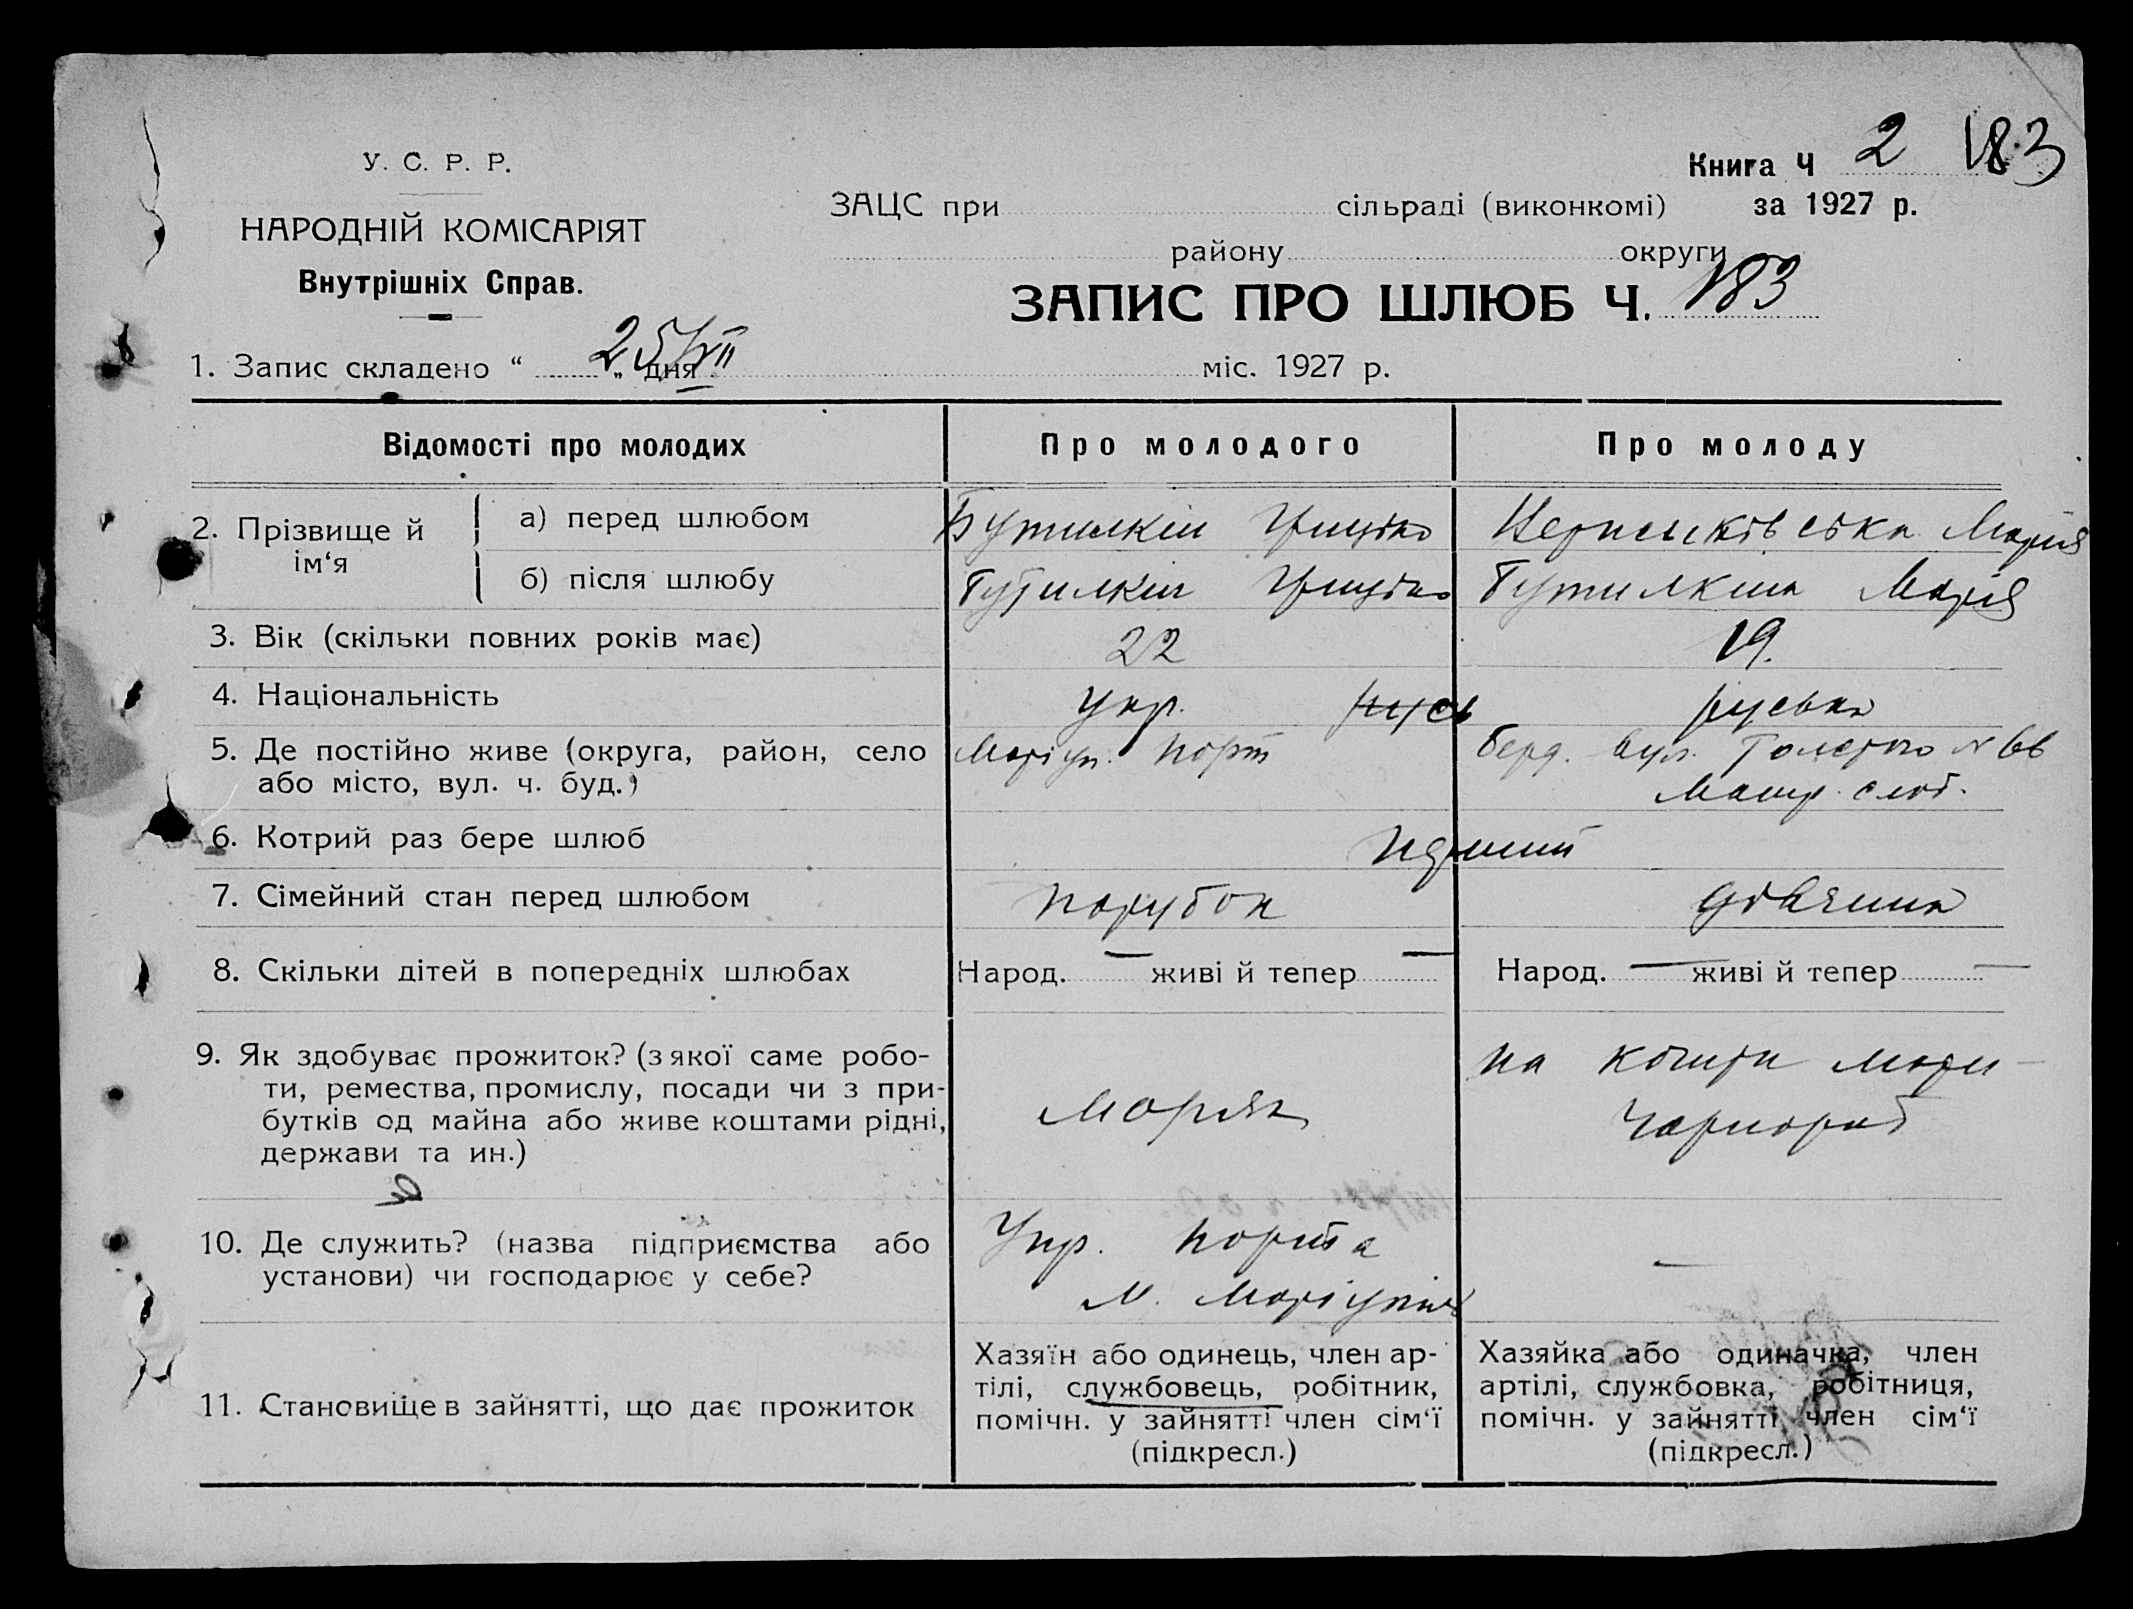 У. С. Р. Р.
НАРОДНІЙ КОМІСАРІЯТ
Внутрішніх Справ.
Книга Ч 2 183
ЗАЦС при сільраді (виконкомі) за 1927 р.
району округи
ЗАПИС ПРО ШЛЮБ Ч. 183
1. Запис складено “ 25/VII „ дня міс. 1927 р.
Відомості про молодих Про молодого Про молоду
2. Прізвище й ім‘я
а) перед шлюбом Бутилкін Грицько Марія
б) після шлюбу Бутилкін Грицько Бутилкина Марія
3. Вік (скільки повних років має) 22 19.
4. Національність Укр. русь руська
5. Де постійно живе (округа, район, село
або місто, вул. ч. буд.)
Маріуп. порт
Берд. вул. Толстого № 66
Мащ. слоб.
6. Котрий раз бере шлюб перший
7. Сімейний стан перед шлюбом парубок дівчина
8. Скільки дітей в попередніх шлюбах Народ. — живі й тепер — Народ. — живі й тепер —
9. Як здобуває прожиток? (з якої саме робо-
ти, ремества, промислу, посади чи з при-
бутків од майна або живе коштами рідні,
держави та ин.)
моряк
на кошти мати
чорнороб
10. Де служить? (назва підприємства або
установи) чи господарює у себе?
Упр. порта
м. Маріупіль
—
11. Становище в зайнятті, що дає прожиток
Хазяїн або одинець, член ар-
тілі, службовець, робітник,
помічн. у зайнятті член сім‘ї
(підкресл.)
Хазяйка або одиначка, член
артілі, службовка, робітниця,
помічн. у зайнятті член сім‘ї
(підкресл.)